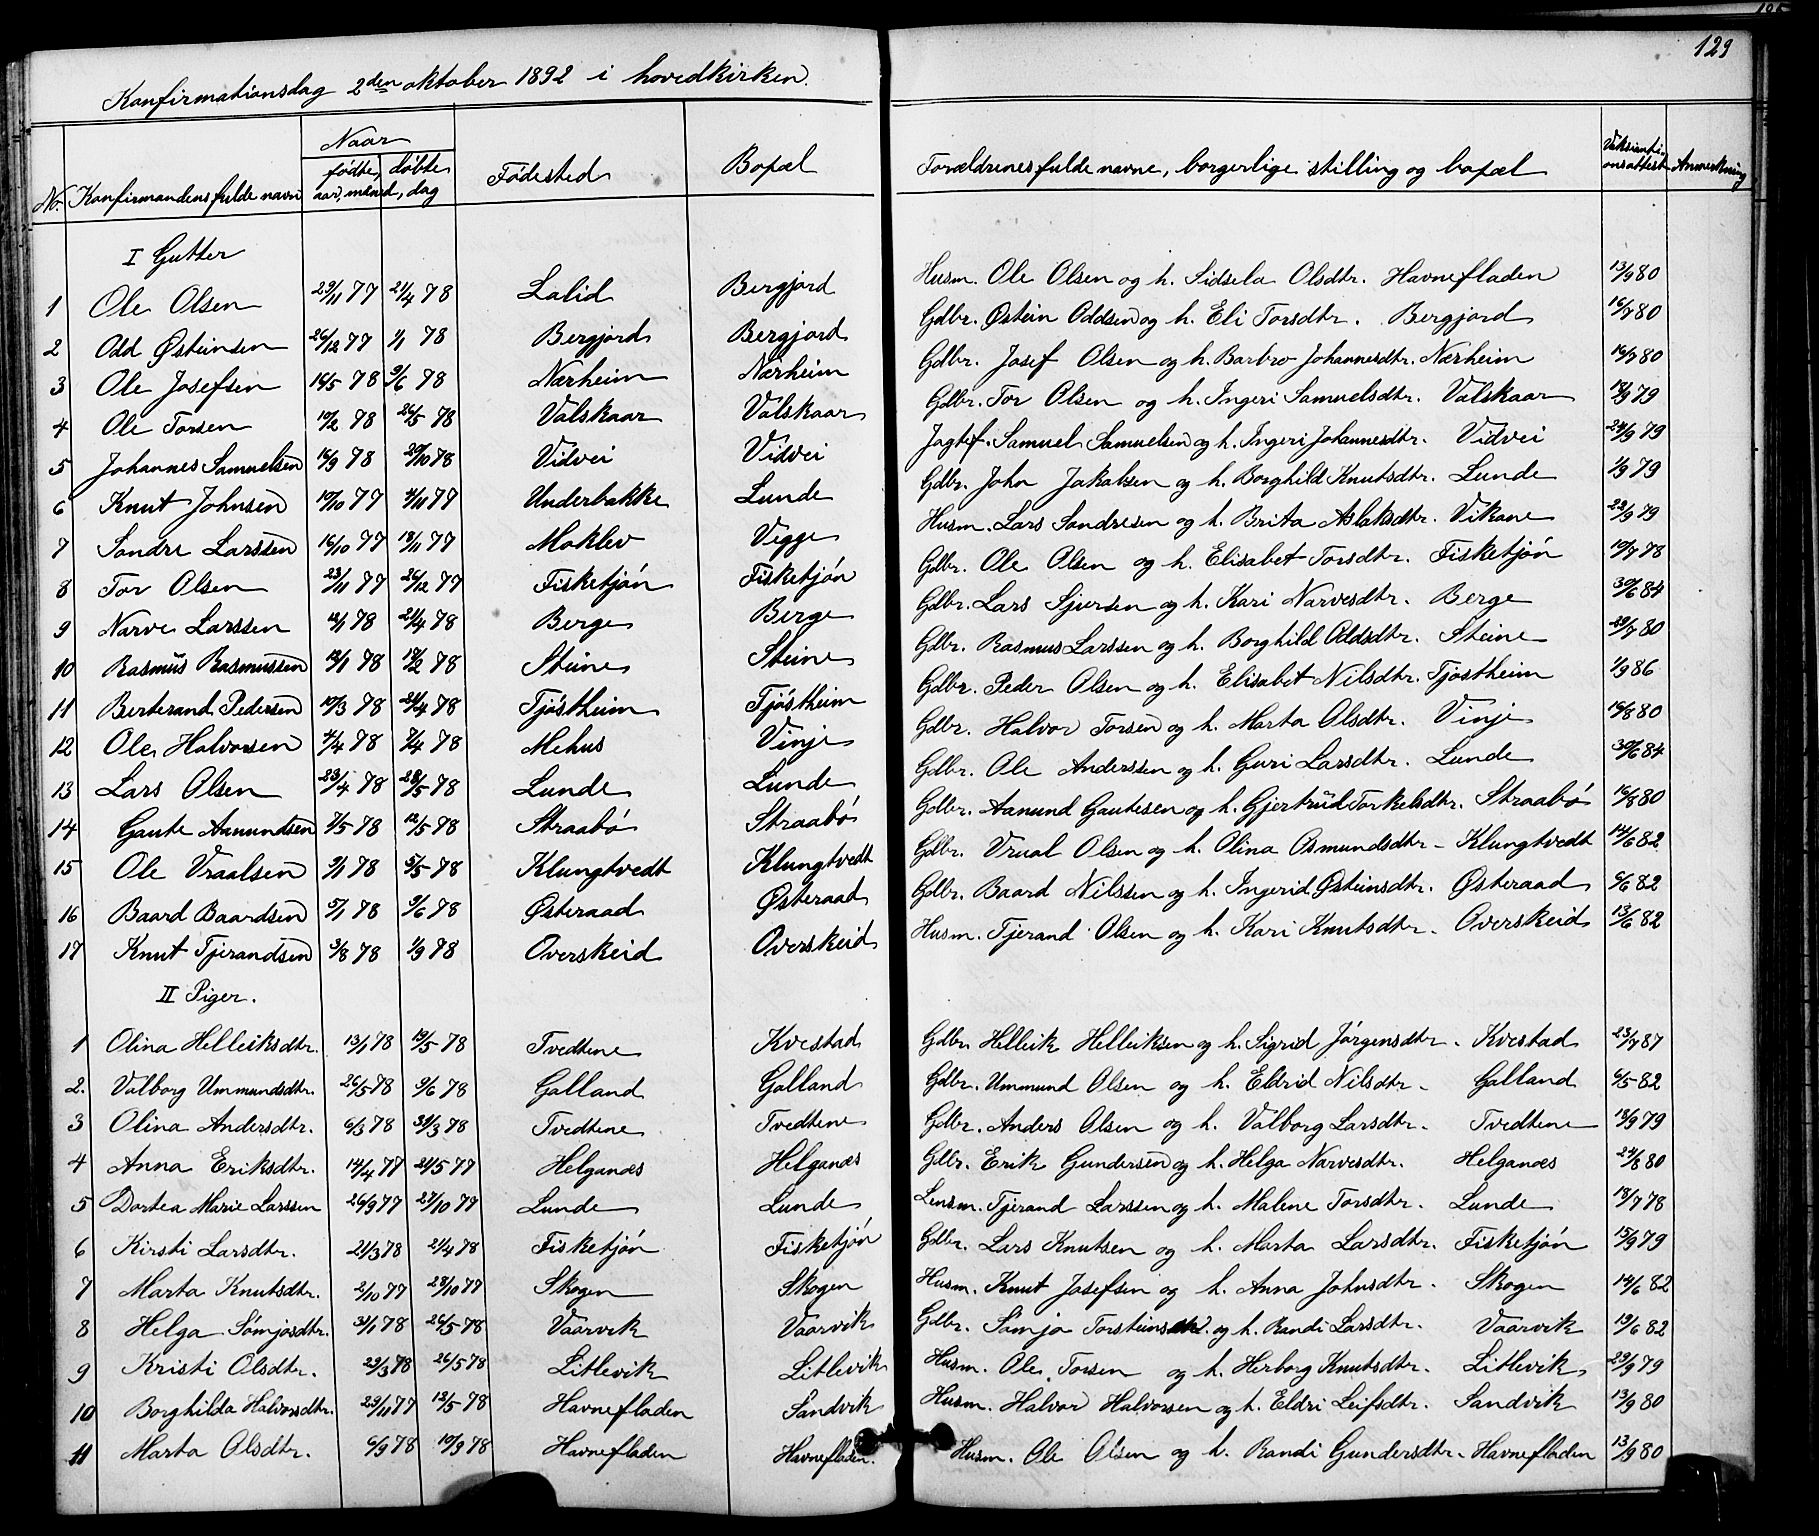 129
Konfirmationsdag 2den oktober 1892 i hovedkirken.
No. Konfirmandens fulde navn Naar fødte, døbte aar, maaned, dag Fødested Bopæl Forældrenes fulde navne, borgerlige stilling og bopæl Vaksinationsattest Anmerkning
I Gutter
1 Ole Olsen 29/11 77 21/4 78 Lalid Bergjord Husm. Ole Olsen og h. Sidsela Olsdtr. Havnefladen 13/9 80
2 Odd Østeinsen 26/12 77 1/1 78 Bergjord Bergjord Gdbr. Østein Oddsen og h. Eli Torsdtr. Bergjord 16/7 80
3 Ole Josefsen 16/5 78 9/6 78 Nærheim Nærheim Gdbr. Josef Olsen og h. Barbro Johannesdtr. Nærheim 16/7 80
4 Ole Torsen 10/2 78 26/5 78 Valskaar Valskaar Gdbr. Tor Olsen og h. Ingeri Samuelsdtr. Valskaar 17/9 79
5 Johannes Samuelsen 16/9 78 20/10 78 Vidvei Vidvei Jagtef. Samuel Samuelsen og h. Ingeri Johannesdtr. Vidvei 24/9 79
6 Knut Johnsen 10/10 77 4/11 77 Underbakke Lunde Gdbr. John Jakobsen og h. Borghild Knutsdtr. Lunde 1/9 79
7 Sondre Larssen 16/10 77 18/11 77 Moklev Vegge Husm. Lars Sondresen og h. Brita Aslaksdtr. Vikane 22/9 79
8 Tor Olsen 23/11 77 26/12 77 Fisketjøn Fisketjøn Gdbr. Ole Olsen og h. Elisabet Torsdtr. Fisketjøn 10/7 78
9 Narve Larssen 12/1 78 21/4 78 Berge Berge Gdbr. Lars Sjursen og h. Kari Narvesdtr. Berge 30/6 84
10 Rasmus Rasmussen 13/1 78 17/2 78 Steine Steine Gdbr. Rasmus Larssen og h. Borghild Oddsdtr. Steine 29/7 80
11 Berterand Pedersen 10/3 78 21/4 78 Tjøstheim Tjøstheim Gdbr. Peder Olsen og h. Elisabet Nilsdtr. Tjøstheim 1/9 86
12 Ole Halvorsen 4/4 78 7/4 78 Mehus Vinje Gdbr. Halvor Torsen og h. Marta Olsdtr. Vinje 16/8 80
13 Lars Olsen 23/4 78 28/5 78 Lunde Lunde Gdbr. Ole Anderssen og h. Guri Larsdtr. Lunde 30/6 84
14 Gaute Aamundsen 7/5 78 12/5 78 Straabø Straabø Gdbr. Aamund Gautesen og h. Gjertrud Torkelsdtr. Straabø 16/8 80
15 Ole Vraalsen 9/1 78 5/5 78 Klungtvedt Klungtvedt Gdbr. Vraal Olsen og h. Olina Osmundsdtr - Klungtvedt 14/6 82
16 Baard Baardsen 5/1 78 9/6 78 Østeraad Østeraad Gdbr. Baard Nilssen og h. Ingerid Østeinsdtr. Østeraad 5/6 82
17 Knut Tjerandsen 3/8 78 1/9 78 Overskeid Overskeid Husm. Tjerand Olsen og h. Kari Knutsdtr. Overskeid 13/6 82
II Piger.
1 Olina Helleiksdtr. 13/1 78 19/5 78 Tvedtene Kvestad Gdbr. Helleik Helleiksen og h. Sigrid Jørgensdtr. Kvestad 23/7 87
2. Valborg Ummundsdtr. 26/5 78 9/6 78 Galland Galland Gdbr. Ummund Olsen og h. Eldrid Nilsdtr - Galland 6/5 82
3 Olina Andersdtr. 6/3 78 31/3 78 Tvedtene Tvedtene Gdbr. Anders Olsen og h. Valborg Larsdtr. Tvedtene 18/9 79
4 Anna Eriksdtr. 14/4 77 21/5 77 Helganes Helganes Gdbr. Erik Gundersen og h. Helga Narvesdtr. Helganes 24/8 80
5 Dortea Marie Larssen 26/9 77 27/10 77 Lunde Lunde Lensm. Tjerand Larssen og h. Malene Torsdtr. Lunde 18/7 78
6 Kirsti Larsdtr. 21/3 78 21/4 78 Fisketjøn Fisketjøn Gdbr. Lars Knutsen og h. Marta Larsdtr. Fisketjøn 15/9 79
7 Marta Knutsdtr. 2/10 77 28/10 77 Skogen Skogen Husm. Knut Josefsen og h. Anna Johnsdtr. Skogen 14/6 82
8 Helga Sømjosdtr. 31/1 78 26/5 78 Vaarvik Vaarvik Gdbr. Sømjo Torsteins og h. Randi Larsdtr. Vaarvik 19/6 82
9 Kristi Olsdtr. 23/3 78 26/5 78 Litlevik Litlevik Husm. Ole Torsen og h. Herborg Knutsdtr. Litlevik 23/9 79
10 Borghilda Halvorsdtr. 23/11 77 12/5 78 Havnefladen Sandvik Husm. Halvor Halvorsen og h. Eldri Leifsdtr. Sandvik 13/9 80
11 Marta Olsdtr. 6/9 78 10/9 78 Havnefladen Havnefladen. Husm. Ole Olsen og h. Randi Gundersdtr. Havnefladen 13/9 80